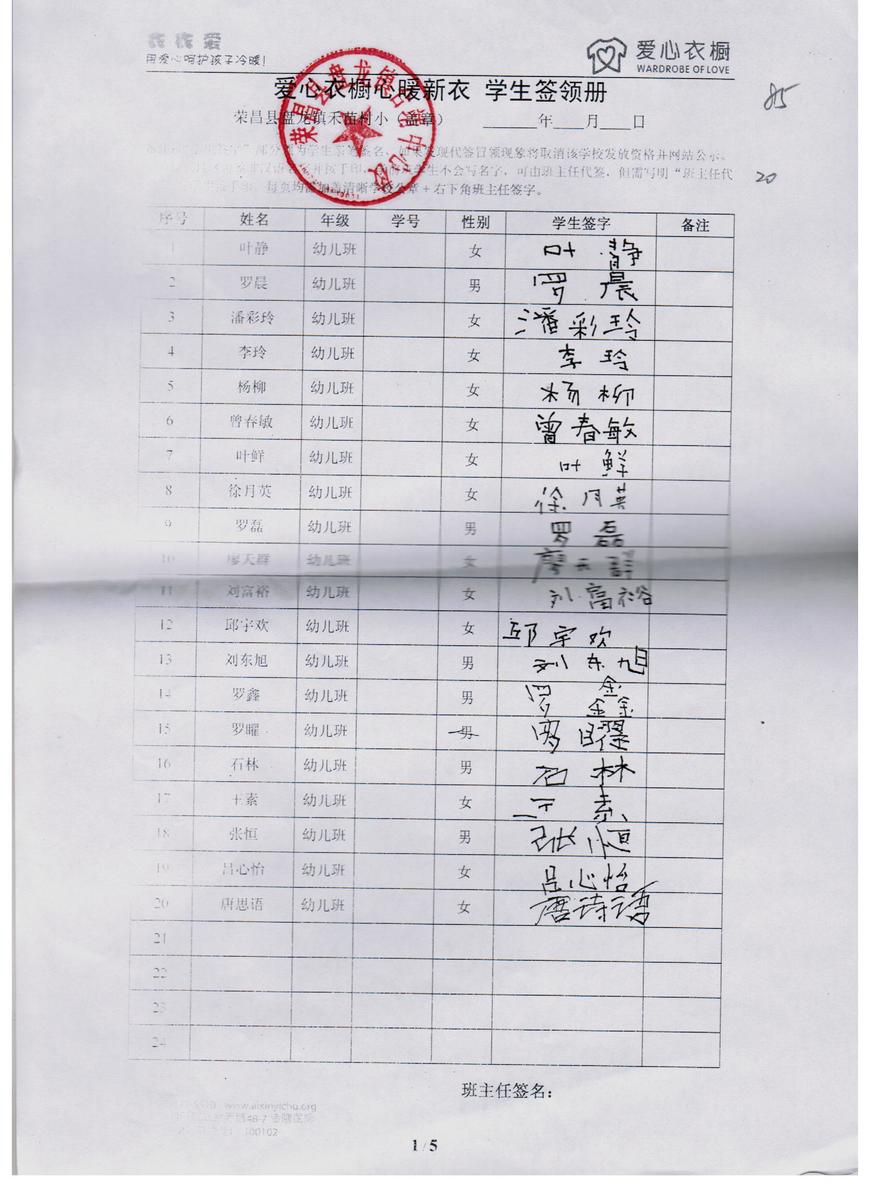 用爱心呵护孩子冷暖!
爱心衣橱
WARDROBE OF LOVE
85
爱心衣橱心暖新衣 学生签领册
荣昌县盘龙镇禾苗村小（盖章） 年 月 日
部分 为学生亲笔签名，如果发现代签冒领现象将取消该学校发放资格并网站公示。
学生不会写名字，可由班主任代签，但需写明“班主任代
按手印，每页均需加盖清晰学校公章+右下角班主任签字。
20
序号 姓名 年级 学号 性别 学生签字 备注
1 叶静 幼儿班 女 叶静
2 罗晨 幼儿班 男 罗晨
3 潘彩玲 幼儿班 女 潘彩玲
4 李玲 幼儿班 女 李玲
5 杨柳 幼儿班 女 杨柳
6 曾春敏 幼儿班 女 曾春敏
7 叶鲜 幼儿班 女 叶鲜
8 徐月英 幼儿班 女 徐月英
9 罗磊 幼儿班 男 罗磊
10 廖天群 幼儿班 女 廖天群
11 刘富裕 幼儿班 女 刘富裕
12 邱宇欢 幼儿班 女 邱宇欢
13 刘东旭 幼儿班 男 刘东旭
14 罗鑫 幼儿班 男 罗鑫
15 罗曜 幼儿班 男 罗曜
16 石林 幼儿班 男 石林
17 王素 幼儿班 女 王素
18 张恒 幼儿班 男 张恒
19 吕心怡 幼儿班 女 吕心怡
20 唐思语 幼儿班 女 唐诗语
21
22
23
24
班主任签名：
www.aixinyichu.org
100102
1 / 5